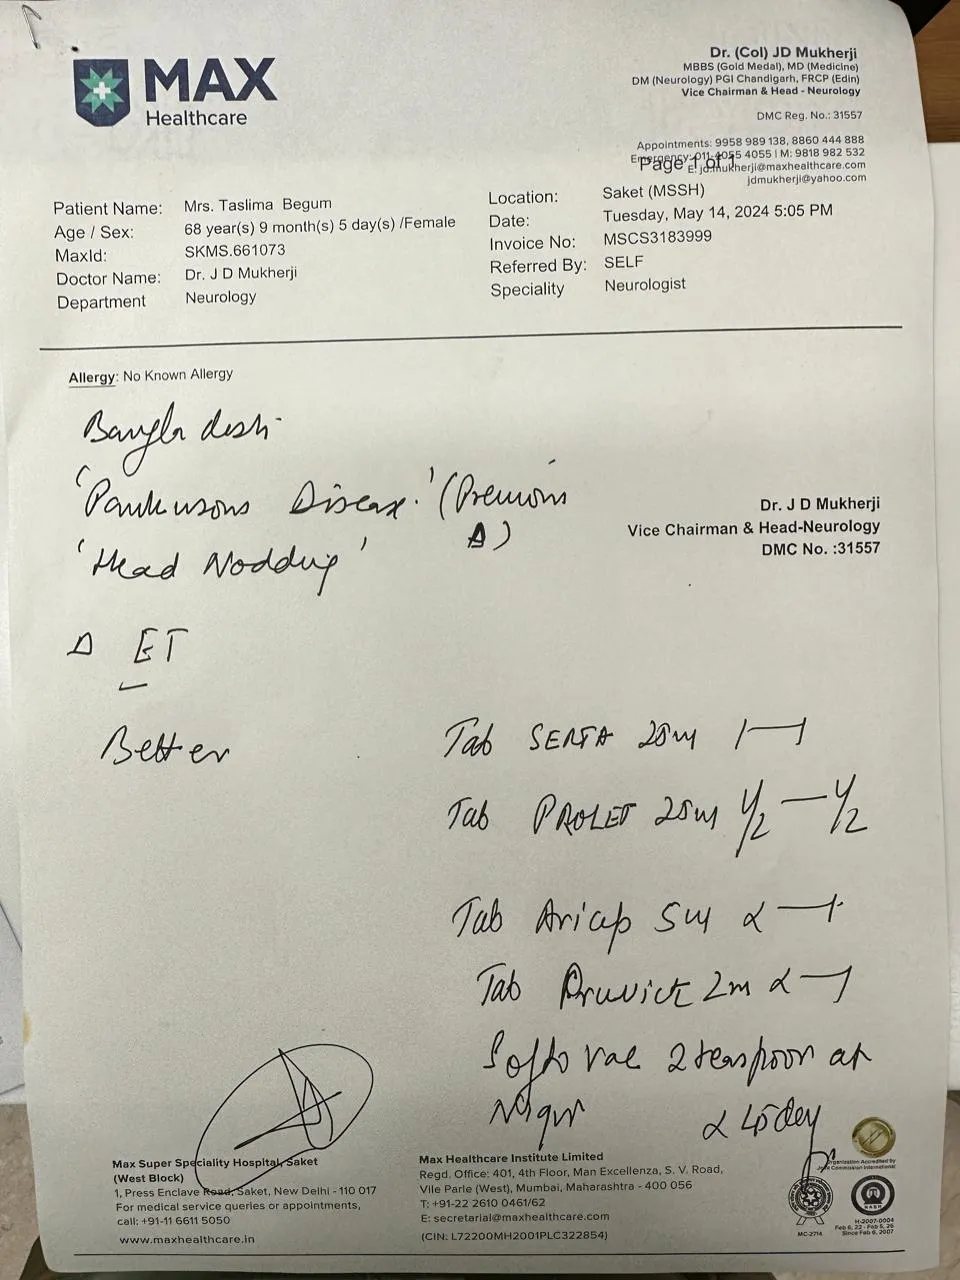 MAX
Healthcare
Dr. (Col) JD Mukherji
MBBS (Gold Medal), MD (Medicine)
DM (Neurology) PGI Chandigarh, FRCP (Edin)
Vice Chairman & Head - Neurology
DMC Reg. No.: 31557
Appointments: 9958 989 138, 8860 444 888
Emergency: 011-4055 4055 | M: 9818 982 532
Page 1 of 1
E: jd.mukherji@maxhealthcare.com
jdmukherji@yahoo.com
Patient Name: Mrs. Taslima Begum
Age / Sex: 68 year(s) 9 month(s) 5 day(s) /Female
MaxId: SKMS.661073
Doctor Name: Dr. J D Mukherji
Department Neurology
Location: Saket (MSSH)
Date: Tuesday, May 14, 2024 5:05 PM
Invoice No: MSCS3183999
Referred By: SELF
Speciality Neurologist
Allergy: No Known Allergy
Bangladesh
'Parkinsons Disease.' (Previous
Δ)
'Head Nodding'
Dr. J D Mukherji
Vice Chairman & Head-Neurology
DMC No. :31557
Δ ET
Better
Tab SERTA 25m 1—1
Tab PROLET 25m 1/2 — 1/2
Tab Aricep 5m
Tab Pruvict 2m
Softovac 2 teaspoon at
Night
45 day
Max Super Speciality Hospital, Saket
(West Block)
1, Press Enclave Road, Saket, New Delhi - 110 017
For medical service queries or appointments,
call: +91-11 6611 5050
www.maxhealthcare.in
Max Healthcare Institute Limited
Regd. Office: 401, 4th Floor, Man Excellenza, S. V. Road,
Vile Parle (West), Mumbai, Maharashtra - 400 056
T: +91-22 2610 0461/62
E: secretarial@maxhealthcare.com
(CIN: L72200MH2001PLC322854)
Organization Accredited by
Joint Commission International
MC-2714
H-2007-0004
Feb 6, 22 - Feb 6, 26
Since Feb 6, 2007